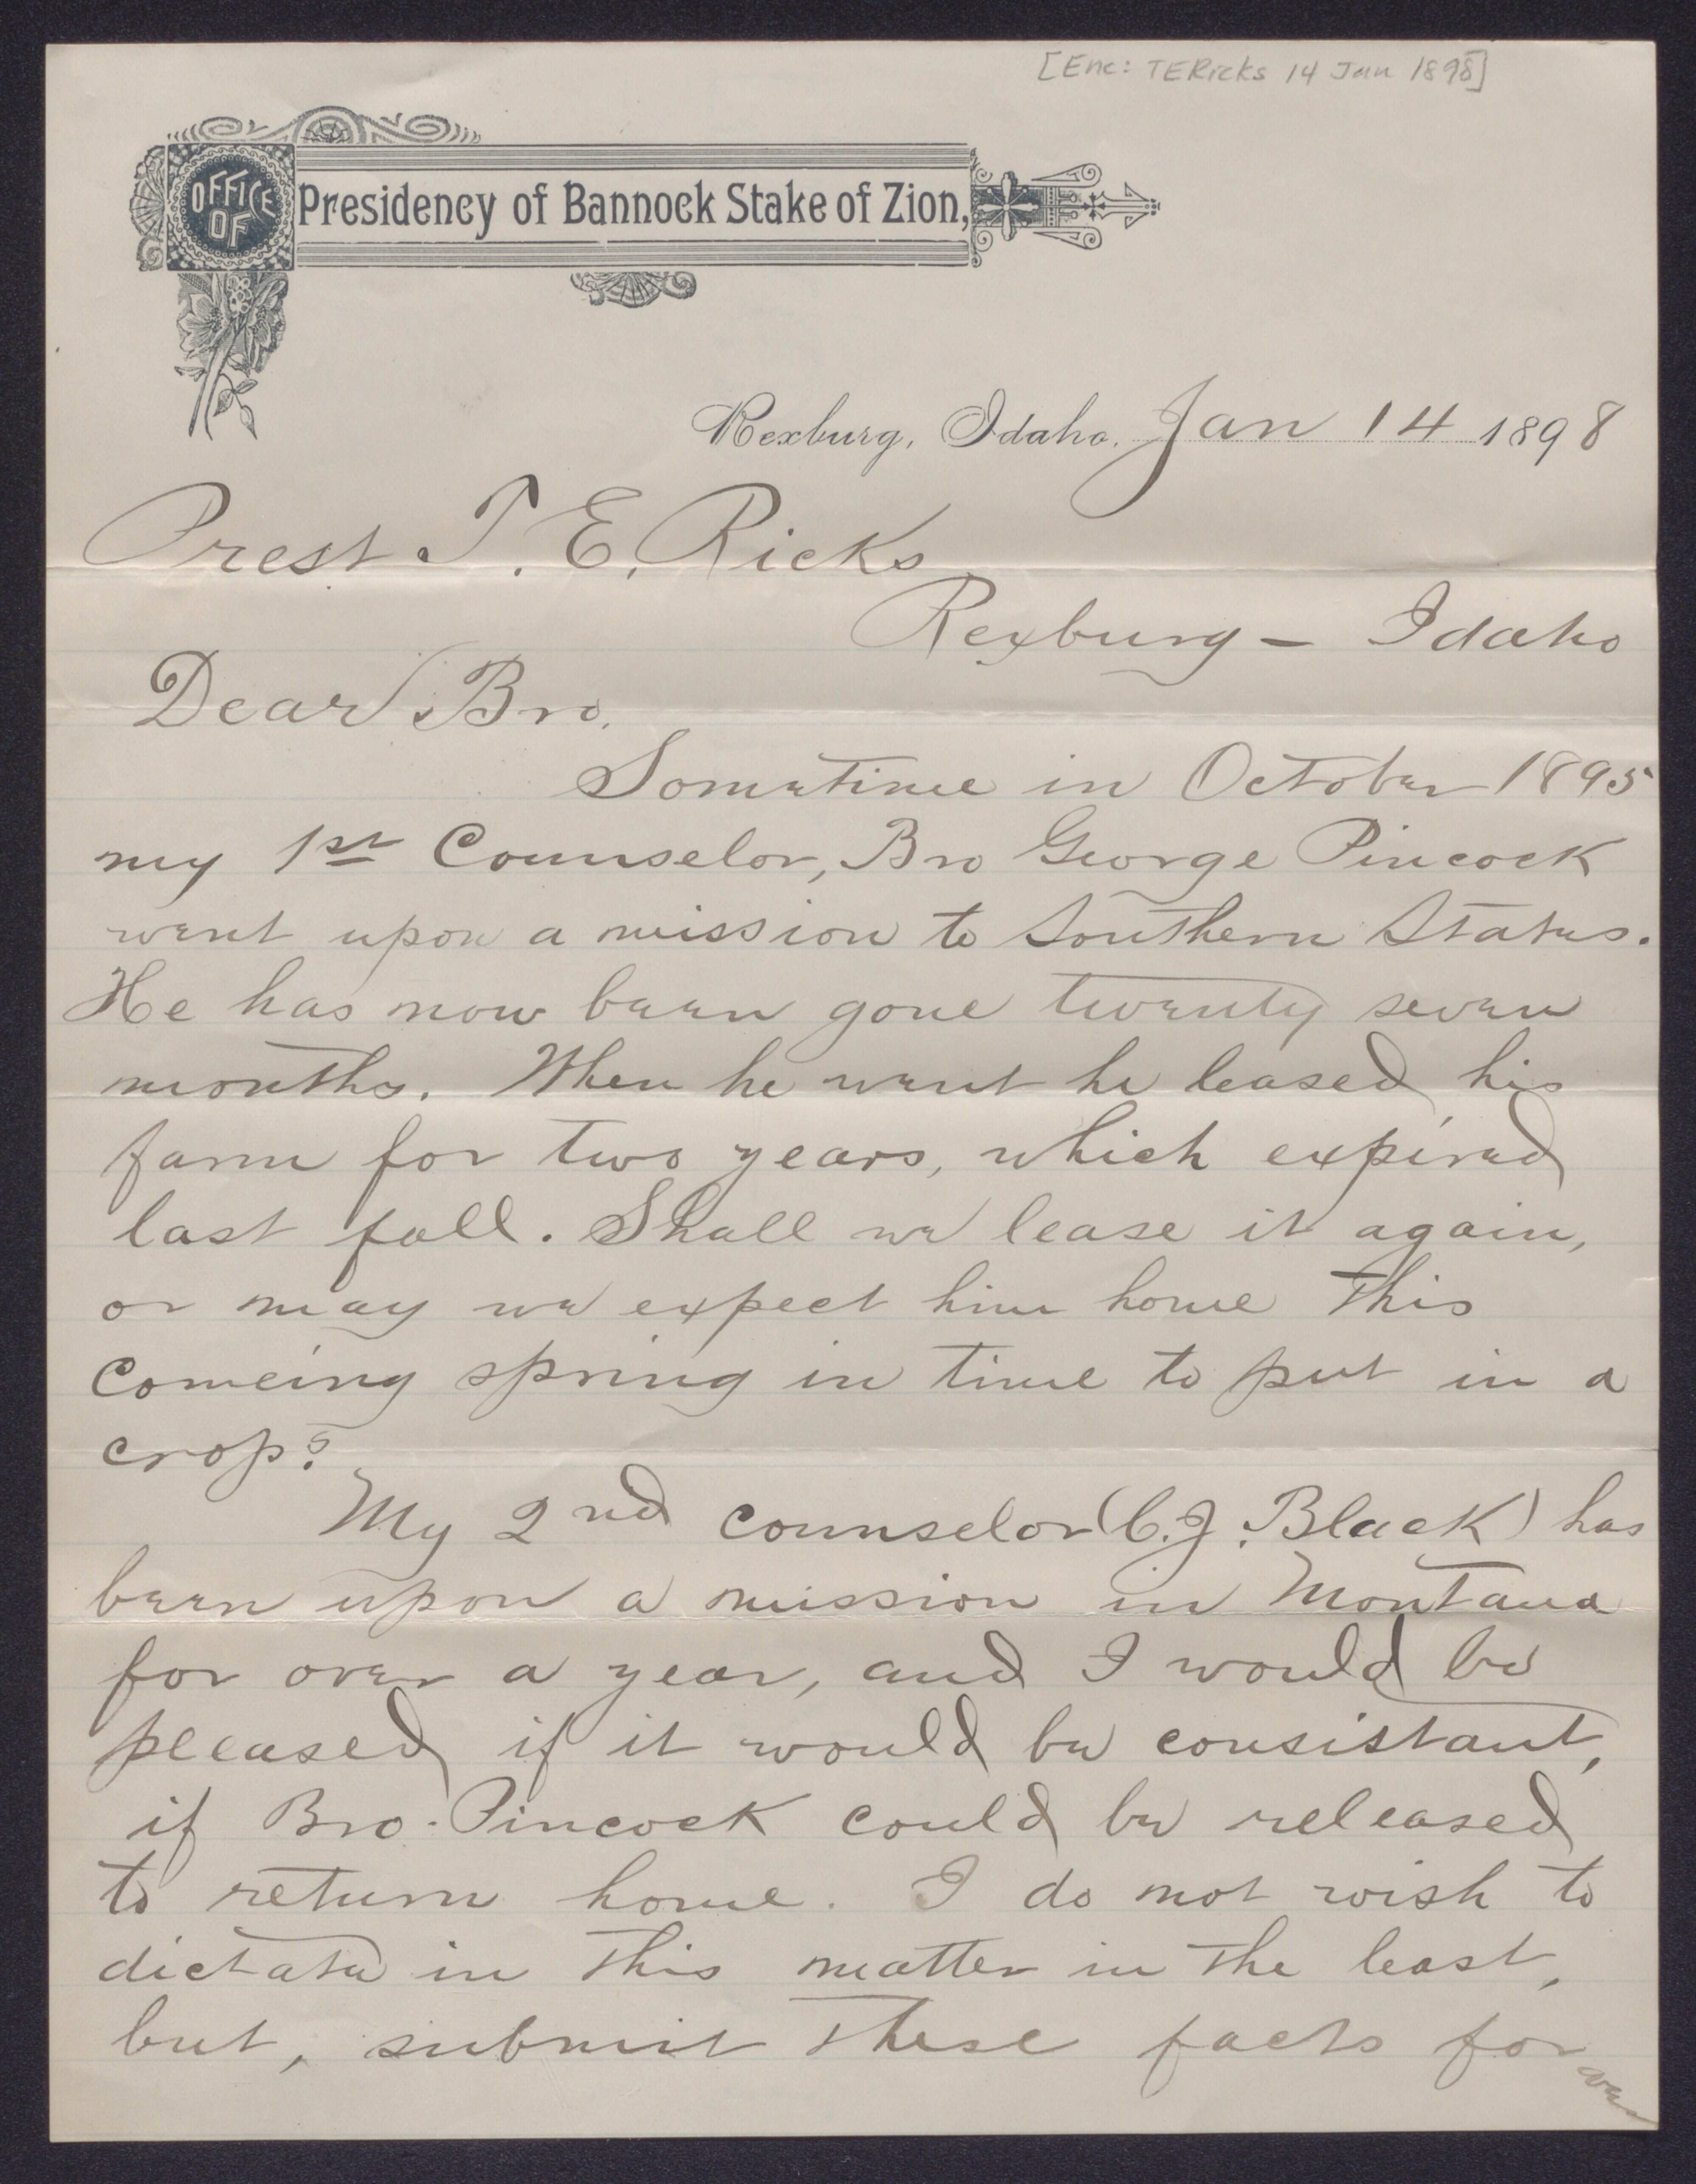 [Enc: TERicks 14 Jan 1898]
OFFICE OF
Presidency of Bannock Stake of Zion,
Rexburg, Idaho. Jan 14 1898
Prest T. E. Ricks
Rexburg - Idaho
Dear Bro.
Sometime in October 1895
my 1st Counselor, Bro George Pincock
went upon a mission to Southern States.
He has now been gone twenty seven
months. When he went he leased his
farm for two years, which expired
last fall. Shall we lease it again,
or may we expect him home this
comeing spring in time to put in a
crop?
My 2nd counselor (C. J. Black) has
been upon a mission in Montana
for over a year, and I would be
pleased if it would be consistant,
if Bro. Pincock could be released
to return home. I do not wish to
dictate in this matter in the least,
but, submit these facts for